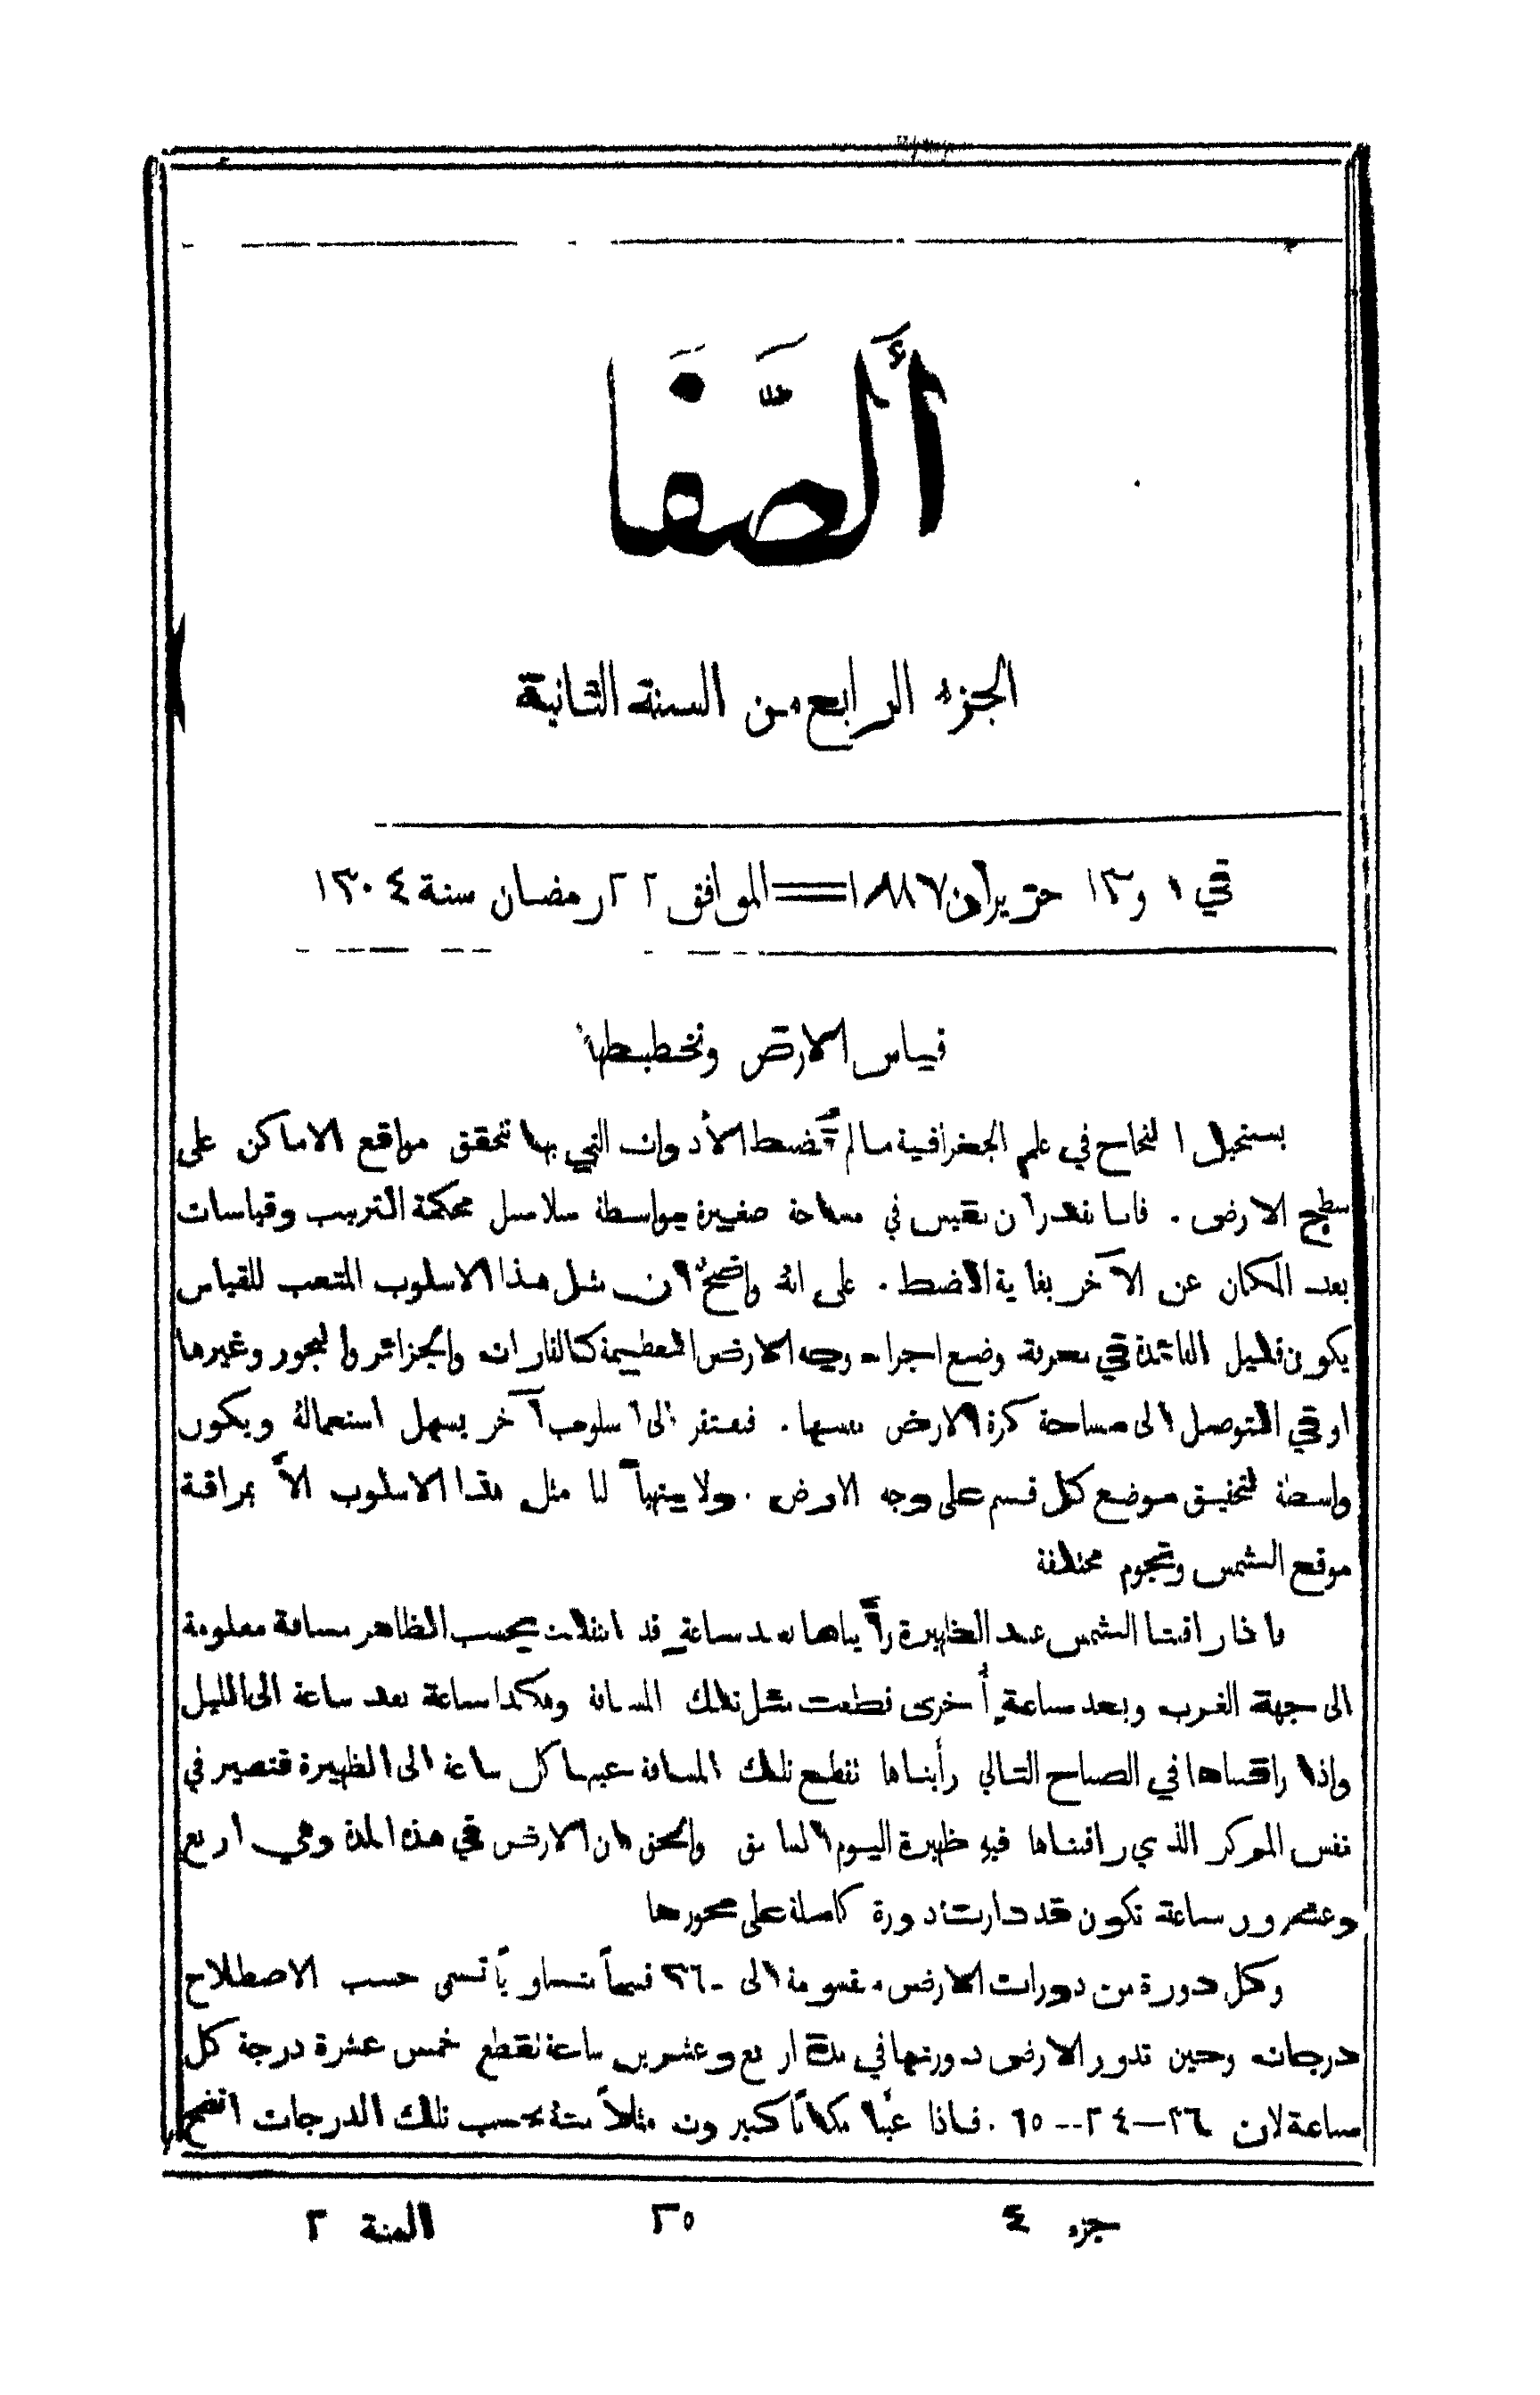 أَلصَّفَا
الجزء الرابع من السنة الثانية
في ١ و١٣ حزيران ١٨٨٧ == الموافق ٢٢ رمضان سنة ١٣٠٤
قياس الارض وتخطيطها
يستحيل النجاح في علم الجغرافية ما لم تُضبط الأدوات التي بها تتحقق مواقع الاماكن على
سطح الارض . فاننا نقدر ان نقيس في مساحة صغيرة بواسطة سلاسل محكمة الترتيب وقياسات
بعد المكان عن الآخر بغاية الضبط . على انهُ واضحٌ ان مثل هذا الاسلوب المتعب للقياس
يكون قليل الفائدة في معرفة وضع اجزاء وجه الارض العظيمة كالقارات والجزائر والبحور وغيرها
او في التوصل الى مساحة كرة الارض نفسها . فنفتقر الى اسلوب آخر يسهل استعمالهُ ويكون
واسطة لتحقيق موضع كل قسم على وجه الارض . ولا يتهيأ لنا مثل هذا الاسلوب الاَّ بمراقبة
موقع الشمس ونجوم مختلفة
فاذا راقبنا الشمس عند الظهيرة رأَيناها بعد ساعةٍ قد انتقلت بحسب الظاهر مسافة معلومة
الى جهة الغرب وبعد ساعةٍ أُخرى قطعت مثل تلك المسافة وهكذا ساعة بعد ساعة الى الليل
واذا راقبناها في الصباح التالي رأَيناها تقطع تلك المسافة عينها كل ساعة الى الظهيرة فتصير في
نفس المركز الذي راقبناها فيهِ ظهيرة اليوم السابق والحق ان الارض في هذه المدة وهي اربع
وعشرون ساعة تكون قد دارت دورة كاملة على محورها
وكل دورة من دورات الارض مقسومة الى ٣٦٠ قسماً متساوياً تسمى حسب الاصطلاح
درجات وحين تدور الارض دورتها في مدة اربع وعشرين ساعة تقطع خمس عشرة درجة كل
ساعة لان ٣٦٠—٢٤--١٥ . فاذا عيَّنا مكاناً كبيروت مثلاً متخذ بحسب تلك الدرجات اتضح
جزء ٤ ٢٥ السنة ٢